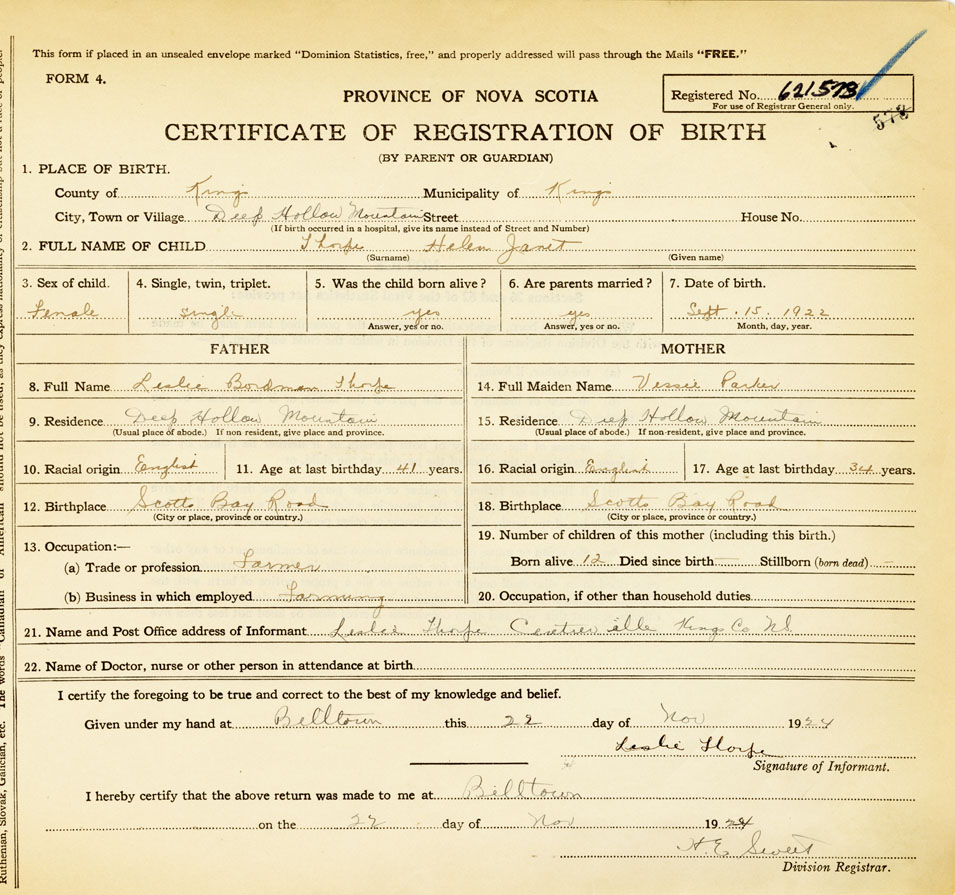 This form if placed in an unsealed envelope marked "Dominion Statistics, free," and properly addressed will pass through the Mails "FREE."
FORM 4.
Registered No. 621573
For use of Registrar General only.
578
PROVINCE OF NOVA SCOTIA
CERTIFICATE OF REGISTRATION OF BIRTH
(BY PARENT OR GUARDIAN)
1. PLACE OF BIRTH.
County of Kings Municipality of Kings
City, Town or Village Deep Hollow Mountain Street House No.
(If birth occurred in a hospital, give its name instead of Street and Number)
2. FULL NAME OF CHILD Thorpe Helen Janet
(Surname) (Given name)
3. Sex of child. 4. Single, twin, triplet. 5. Was the child born alive? 6. Are parents married? 7. Date of birth.
Female single yes yes Sept. 15. 1922
Answer, yes or no. Answer, yes or no. Month, day, year.
FATHER MOTHER
8. Full Name Leslie Bordman Thorpe 14. Full Maiden Name Vessie Parker
9. Residence Deep Hollow Mountain 15. Residence Deep Hollow Mountain
(Usual place of abode.) If non resident, give place and province. (Usual place of abode.) If non-resident, give place and province.
10. Racial origin English 11. Age at last birthday 41 years. 16. Racial origin English 17. Age at last birthday 34 years.
12. Birthplace Scotts Bay Road 18. Birthplace Scotts Bay Road
(City or place, province or country.) (City or place, province or country.)
13. Occupation:— 19. Number of children of this mother (including this birth.)
(a) Trade or profession Farmer Born alive 12 Died since birth — Stillborn (born dead) —
(b) Business in which employed Farming 20. Occupation, if other than household duties
21. Name and Post Office address of Informant Leslie Thorpe Centreville Kings Co NS.
22. Name of Doctor, nurse or other person in attendance at birth
I certify the foregoing to be true and correct to the best of my knowledge and belief.
Given under my hand at Belltown this 22 day of Nov 1924
Leslie Thorpe
Signature of Informant.
I hereby certify that the above return was made to me at Belltown
on the 22 day of Nov 1924
H. E. Sweet
Division Registrar.
Ruthenian, Slovak, Galician, etc. The words "Canadian" or "American" should not be used, as they express nationality or citizenship but not a race of people.